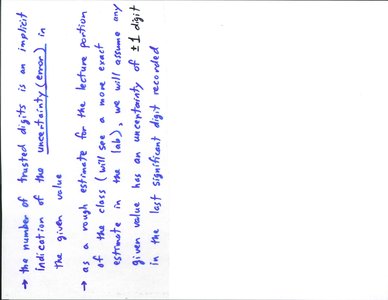 → the number of trusted digits is an implicit
indication of the uncertainty (error) in
the given value
→ as a rough estimate for the lecture portion
of the class (will see a more exact
estimate in the lab), we will assume any
given value has an uncertainty of ±1 digit
in the last significant digit recorded